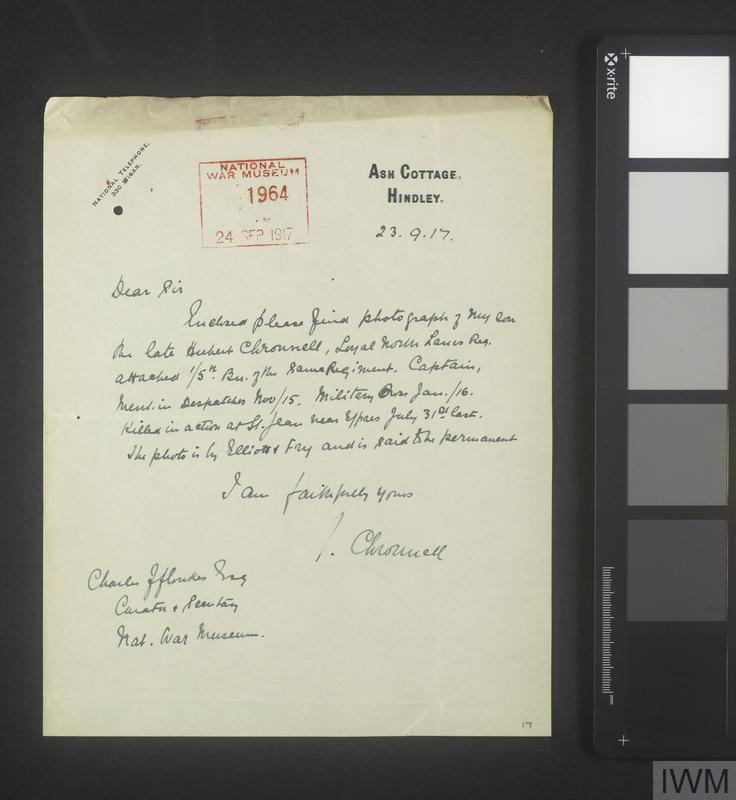 NATIONAL TELEPHONE.
330 WIGAN.
NATIONAL
WAR MUSEUM
1964
24 SEP 1917
ASH COTTAGE,
HINDLEY.
23.9.17.
Dear Sir
Enclosed please find photograph of my son
the late Hubert Chronnell, Loyal North Lancs Reg.
attached 1/5th Bn. of the same Regiment. Captain,
Ment. in Despatches Nov/15. Military Cross Jan./16.
Killed in action at St. Jean near Ypres July 31st last.
The photo is by Elliott & Fry and is said to be permanent
I am faithfully yours
J. Chronnell
Charles ffoulkes Esq
Curator & Secretary
Nat. War Museum.
17
x-rite
mm
IWM